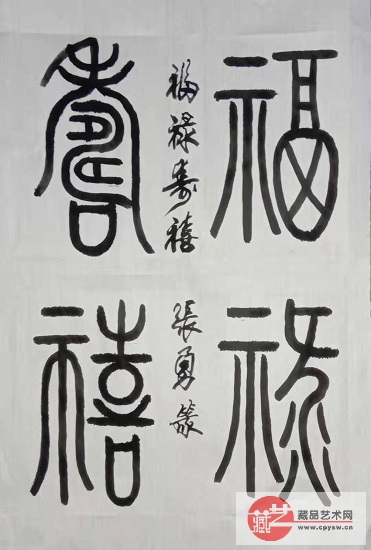 福祿
壽禧
福禄寿禧
張勇篆
藏艺
藏品艺术网
www.cpysw.cn